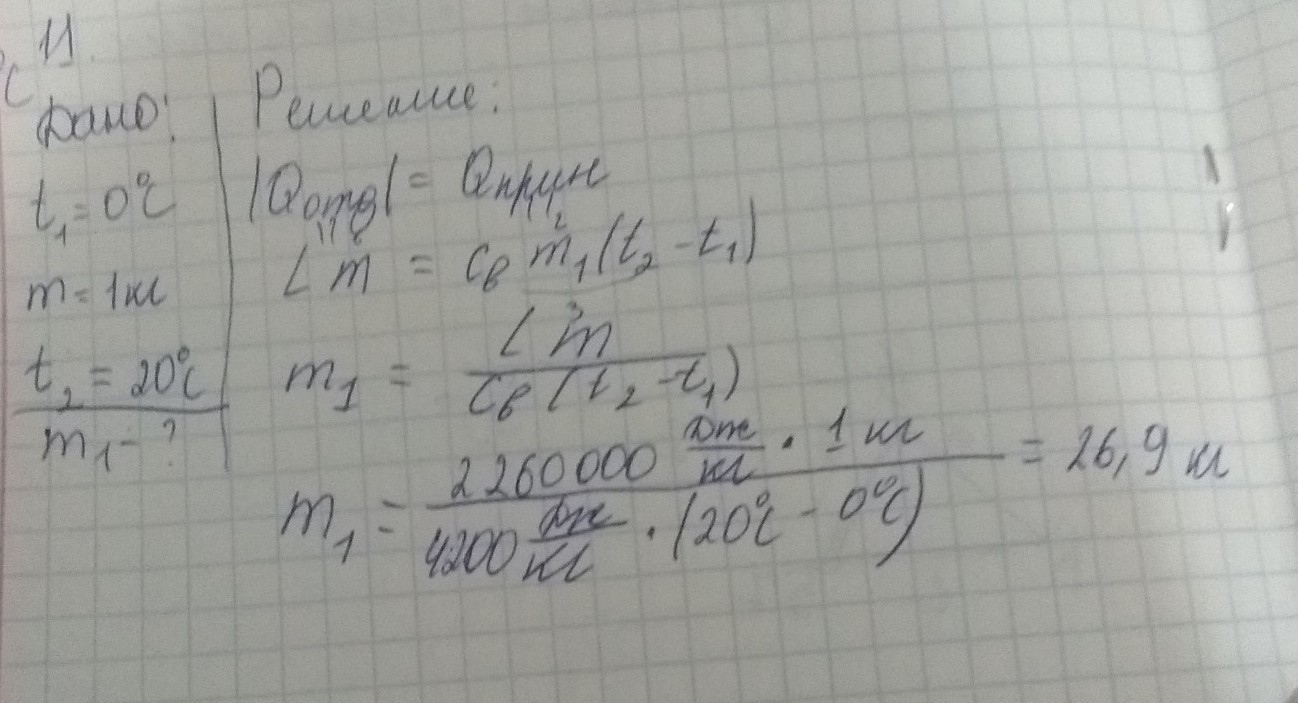 11.
Дано:
t₁ = 0°C
m = 1 кг
t₂ = 20°C
m₁ - ?
Решение:
|Qотд| = Qприн
L m = cв m₁ (t₂ - t₁)
m₁ = L m / cв (t₂ - t₁)
m₁ = 2260000 Дж/кг · 1 кг / 4200 Дж/кг · (20°C - 0°C) = 26,9 кг